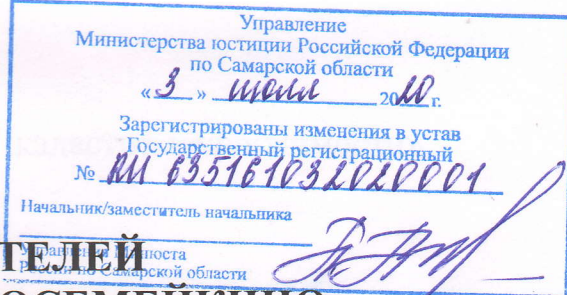 Управление
Министерства юстиции Российской Федерации
по Самарской области
«3» июля 2020 г.
Зарегистрированы изменения в устав
Государственный регистрационный
№ RU 635161032020001
Начальник/заместитель начальника
Управления Минюста
России по Самарской области
ТЕЛЕЙ
ОСЕМЕЙКИНО